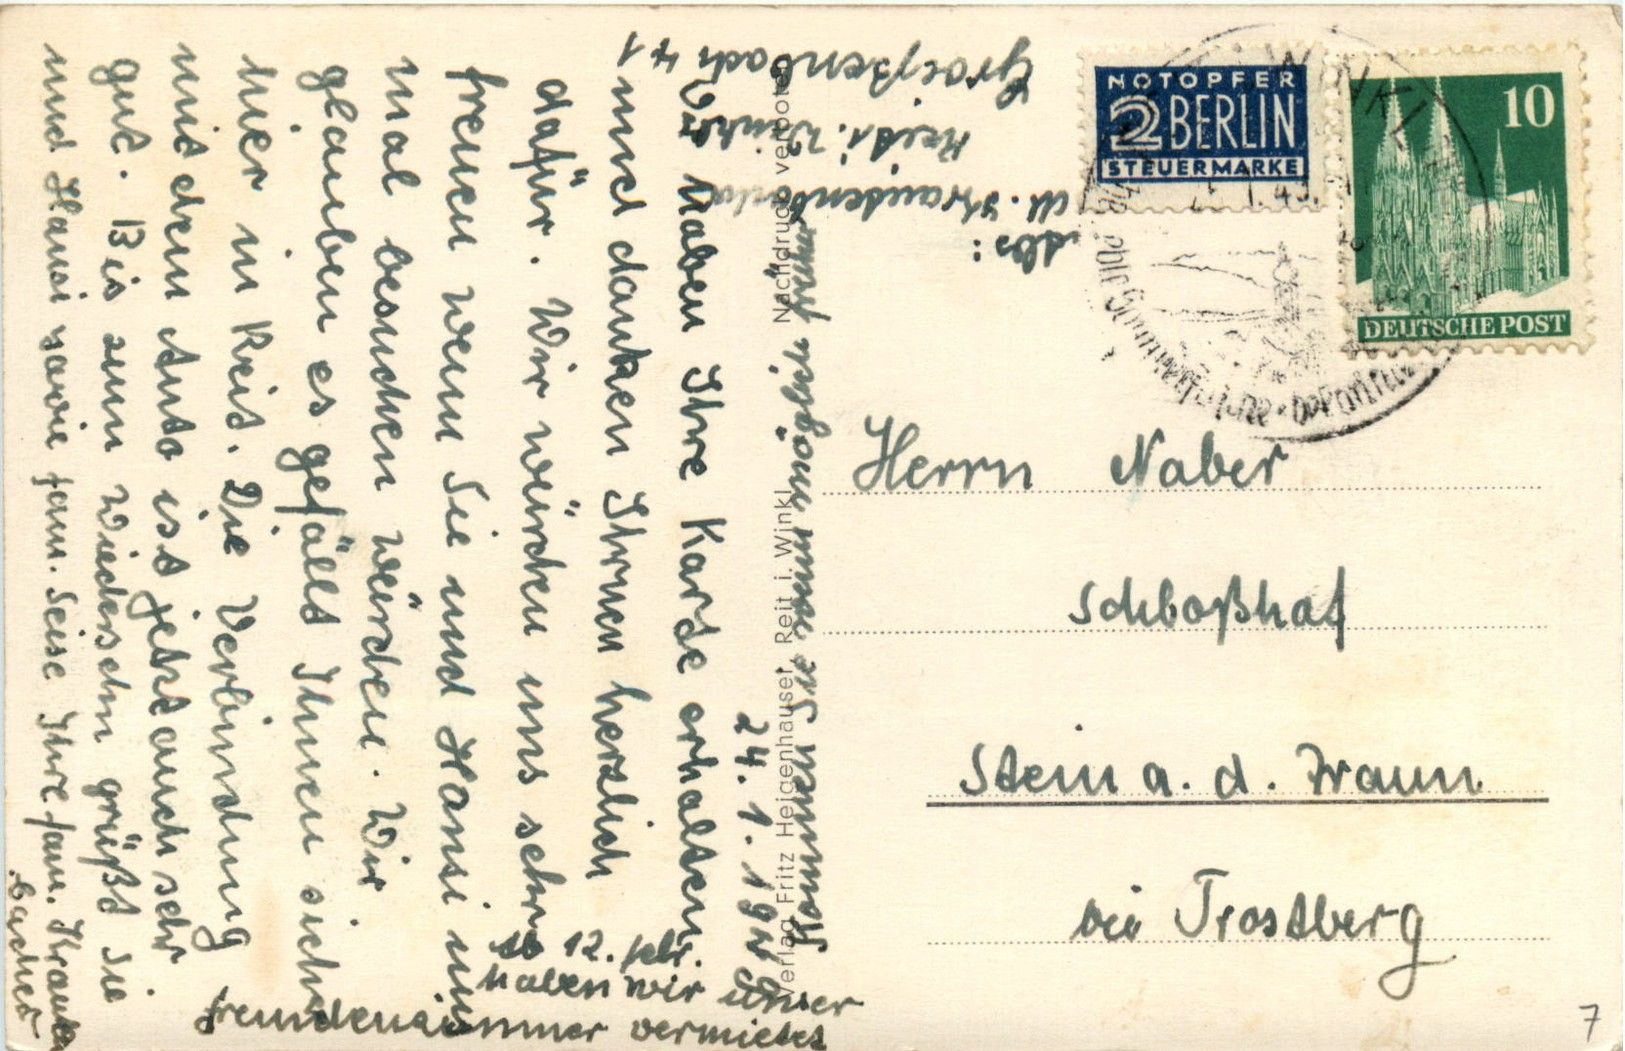 24.1.1949
Wir haben Ihre Karte erhalten
und danken Ihnen herzlich
dafür. Wir würden uns sehr
freuen wenn Sie und Hansi uns
mal besuchen würden. Wir
glauben es gefällt Ihnen sicher
hier in Reit. Die Verbindung
mit dem Auto ist jetzt auch sehr
gut. Bis zum Wiedersehn grüßt Sie
und Hansi sowie fam. Seise Ihre fam. Kranz
bacher
Kommen Sie wenn möglich früher
12. febr.
haben wir unser
fremdenzimmer vermietet
Abs:
Reit i. Winkl
Groißenbach 41
Verlag Fritz Heigenhauser, Reit i. Winkl
Nachdruck verboten
NOTOPFER
2 BERLIN
STEUERMARKE
10
DEUTSCHE POST
Herrn Naber
Schloßhof
Stein a. d. Traun
bei Trostberg
7